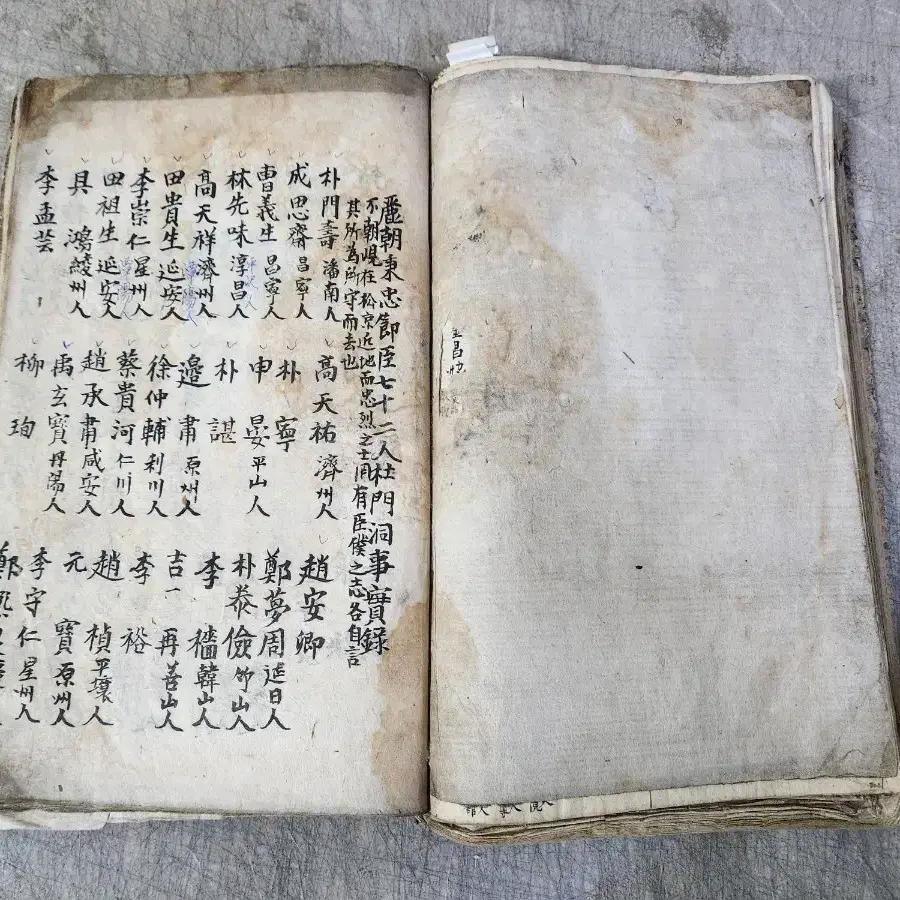 麗朝秉忠節臣七十二人杜門洞事實錄
不朝峴在松京近地而忠烈之士罔有臣僕之志各自言
其所為所守而去也
朴門壽 潘南人
成思齋 昌寧人
曺義生 昌寧人
林先味 淳昌人
高天祥 濟州人
田貴生 延安人
李崇仁 星州人
田祖生 延安人
具鴻 綾州人
李孟芸
高天祐 濟州人
朴寧
申晏 平山人
朴諶
邉肅 原州人
徐仲輔 利川人
蔡貴河 仁川人
趙承肅 咸安人
禹玄寶 丹陽人
柳珣
趙安卿
鄭夢周 延日人
朴泰儉 竹山人
李穡 韓山人
吉再 善山人
李裕
趙楨 平壤人
元寶 原州人
李守仁 星州人
鄭
昌